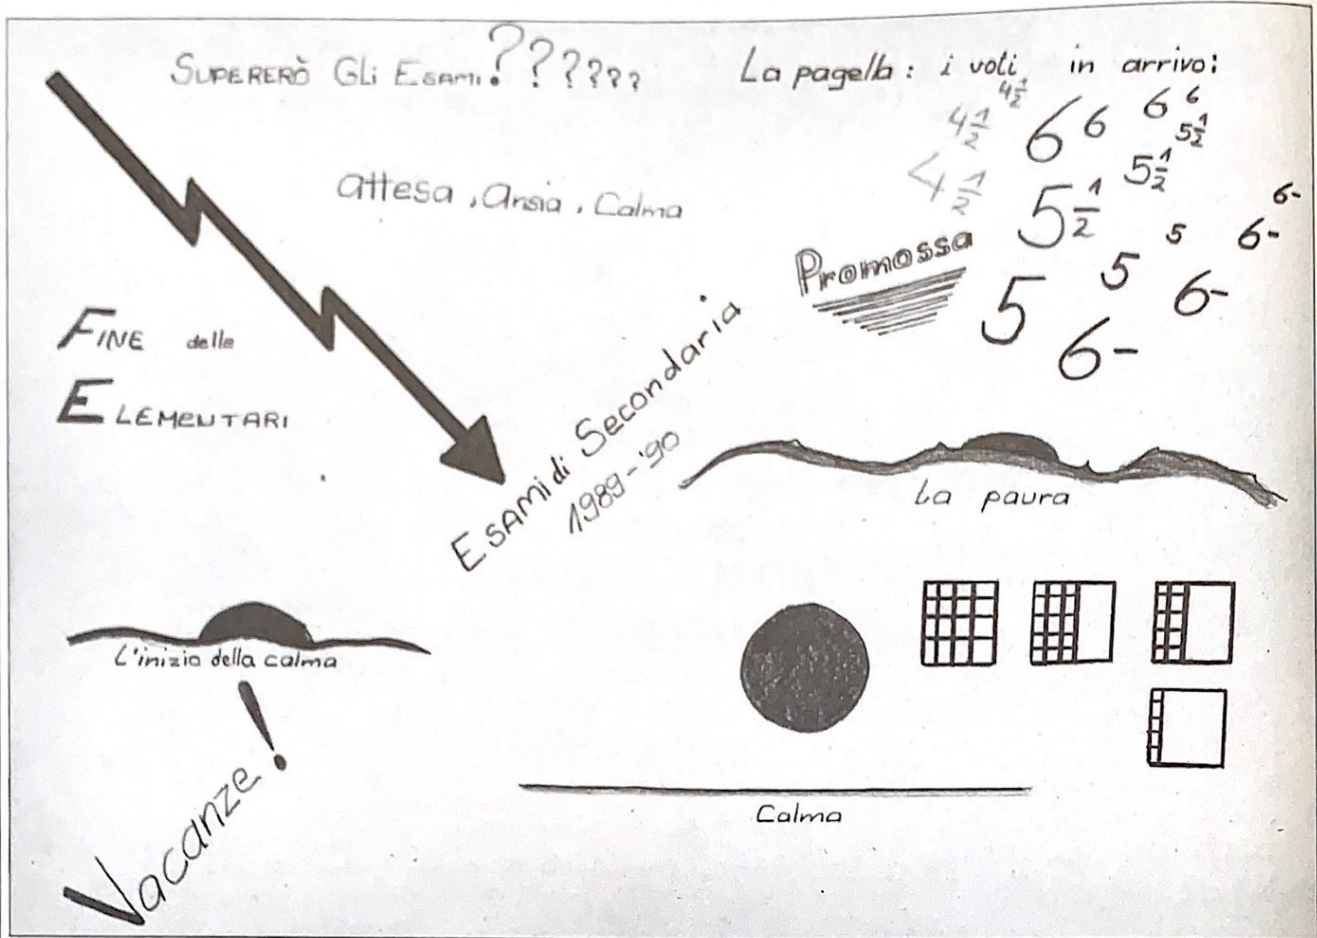 SUPERERÒ GLI ESAMI??????
La pagella: i voti in arrivo:
4½ 4½ 4½
6 6 6 6
5½ 5½ 5½
5 5 5
6- 6- 6- 6-
attesa, Ansia, Calma
Promossa
FINE delle
ELEMENTARI
Esami di Secondaria
1989-'90
La paura
L'inizio della calma
Vacanze!
Calma